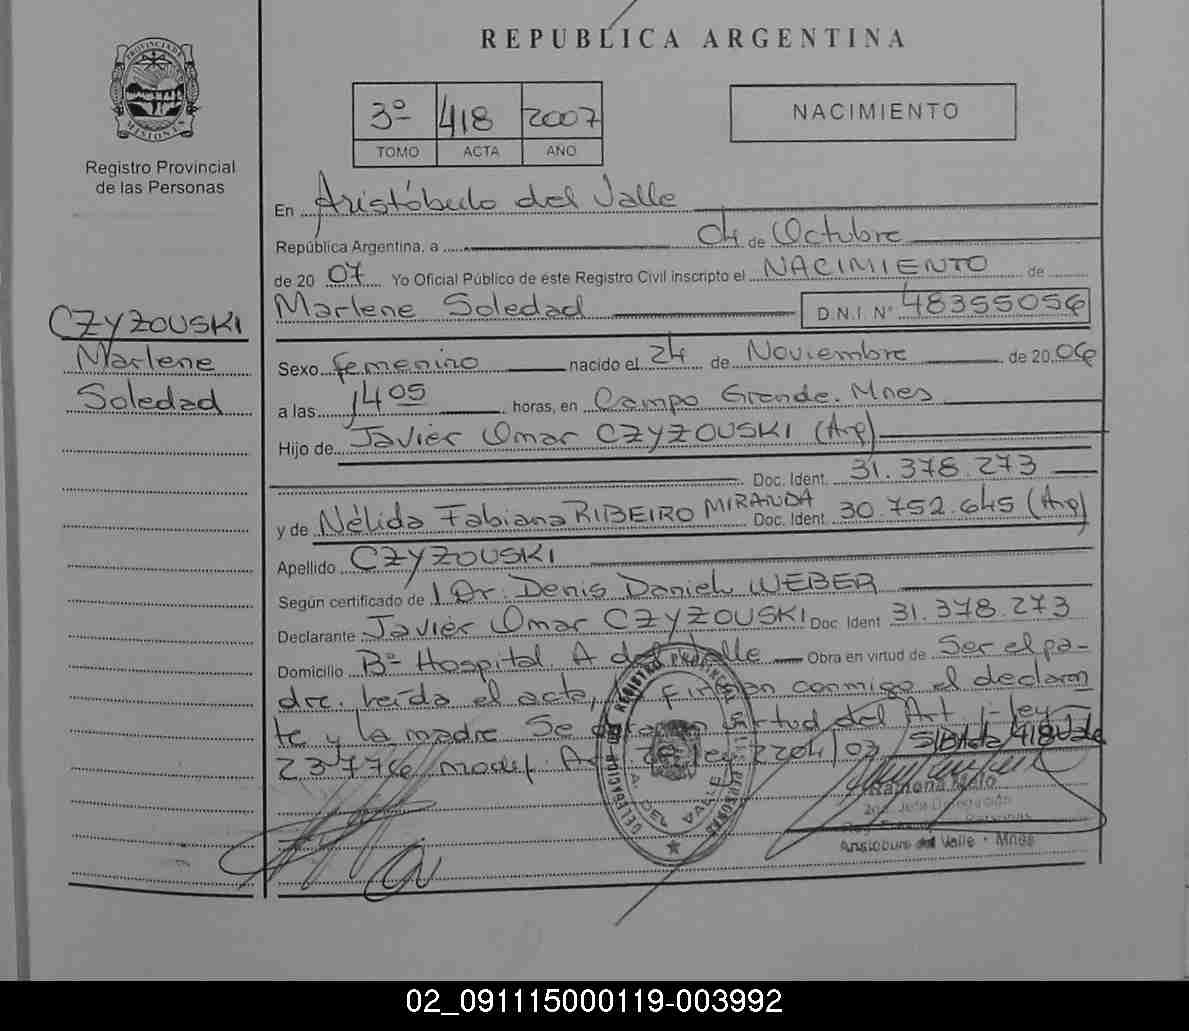 REPUBLICA ARGENTINA
PROVINCIA DE
MISIONES
Registro Provincial
de las Personas
3º 418 2007
TOMO ACTA AÑO
NACIMIENTO
En Aristóbulo del Valle
República Argentina, a 04 de Octubre
de 20 07 Yo Oficial Público de este Registro Civil inscripto el NACIMIENTO de
Marlene Soledad D.N.I. Nº 48355056
CZYZOUSKI
Marlene
Soledad
Sexo femenino nacido el 24 de Noviembre de 20 06
a las 1405 horas, en Campo Grande. Mnes
Hijo de Javier Omar CZYZOUSKI (Arg)
Doc. Ident. 31.378.273
y de Nélida Fabiana RIBEIRO MIRANDA Doc. Ident. 30.752.645 (Arg)
Apellido CZYZOUSKI
Según certificado de Dr. Denis Daniel WEBER
Declarante Javier Omar CZYZOUSKI Doc Ident 31.378.273
Domicilio Bº Hospital A del Valle Obra en virtud de Ser el pa-
dre. Leída el acta, firman conmigo el declaran
te y la madre Se virtud del Art. 1- ley
23776 modif. ley 2204/02 S/BAda 418 Vale
DELEGACION DE REGISTRO PROVINCIAL DE LAS PERSONAS
A. DEL VALLE
Ramona Melo
Jefa Delegación
Aristobulo del Valle - Mnes
02_091115000119-003992